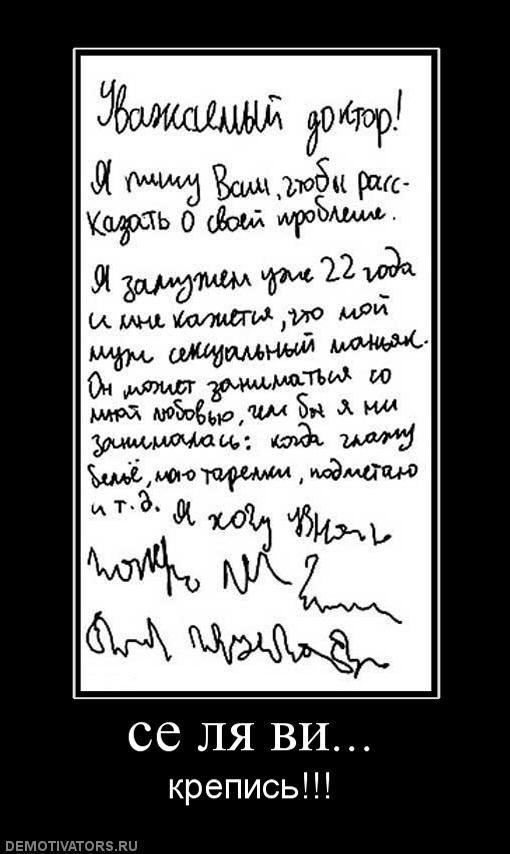 Уважаемый доктор!
Я пишу Вам, чтобы расс-
казать о своей проблеме.
Я замужем уже 22 года
и мне кажется, что мой
муж сексуальный маньяк.
Он может заниматься со
мной любовью, чем бы я ни
занималась: когда глажу
бельё, мою тарелки, подметаю
и т.д. Я хочу
се ля ви...
крепись!!!
DEMOTIVATORS.RU